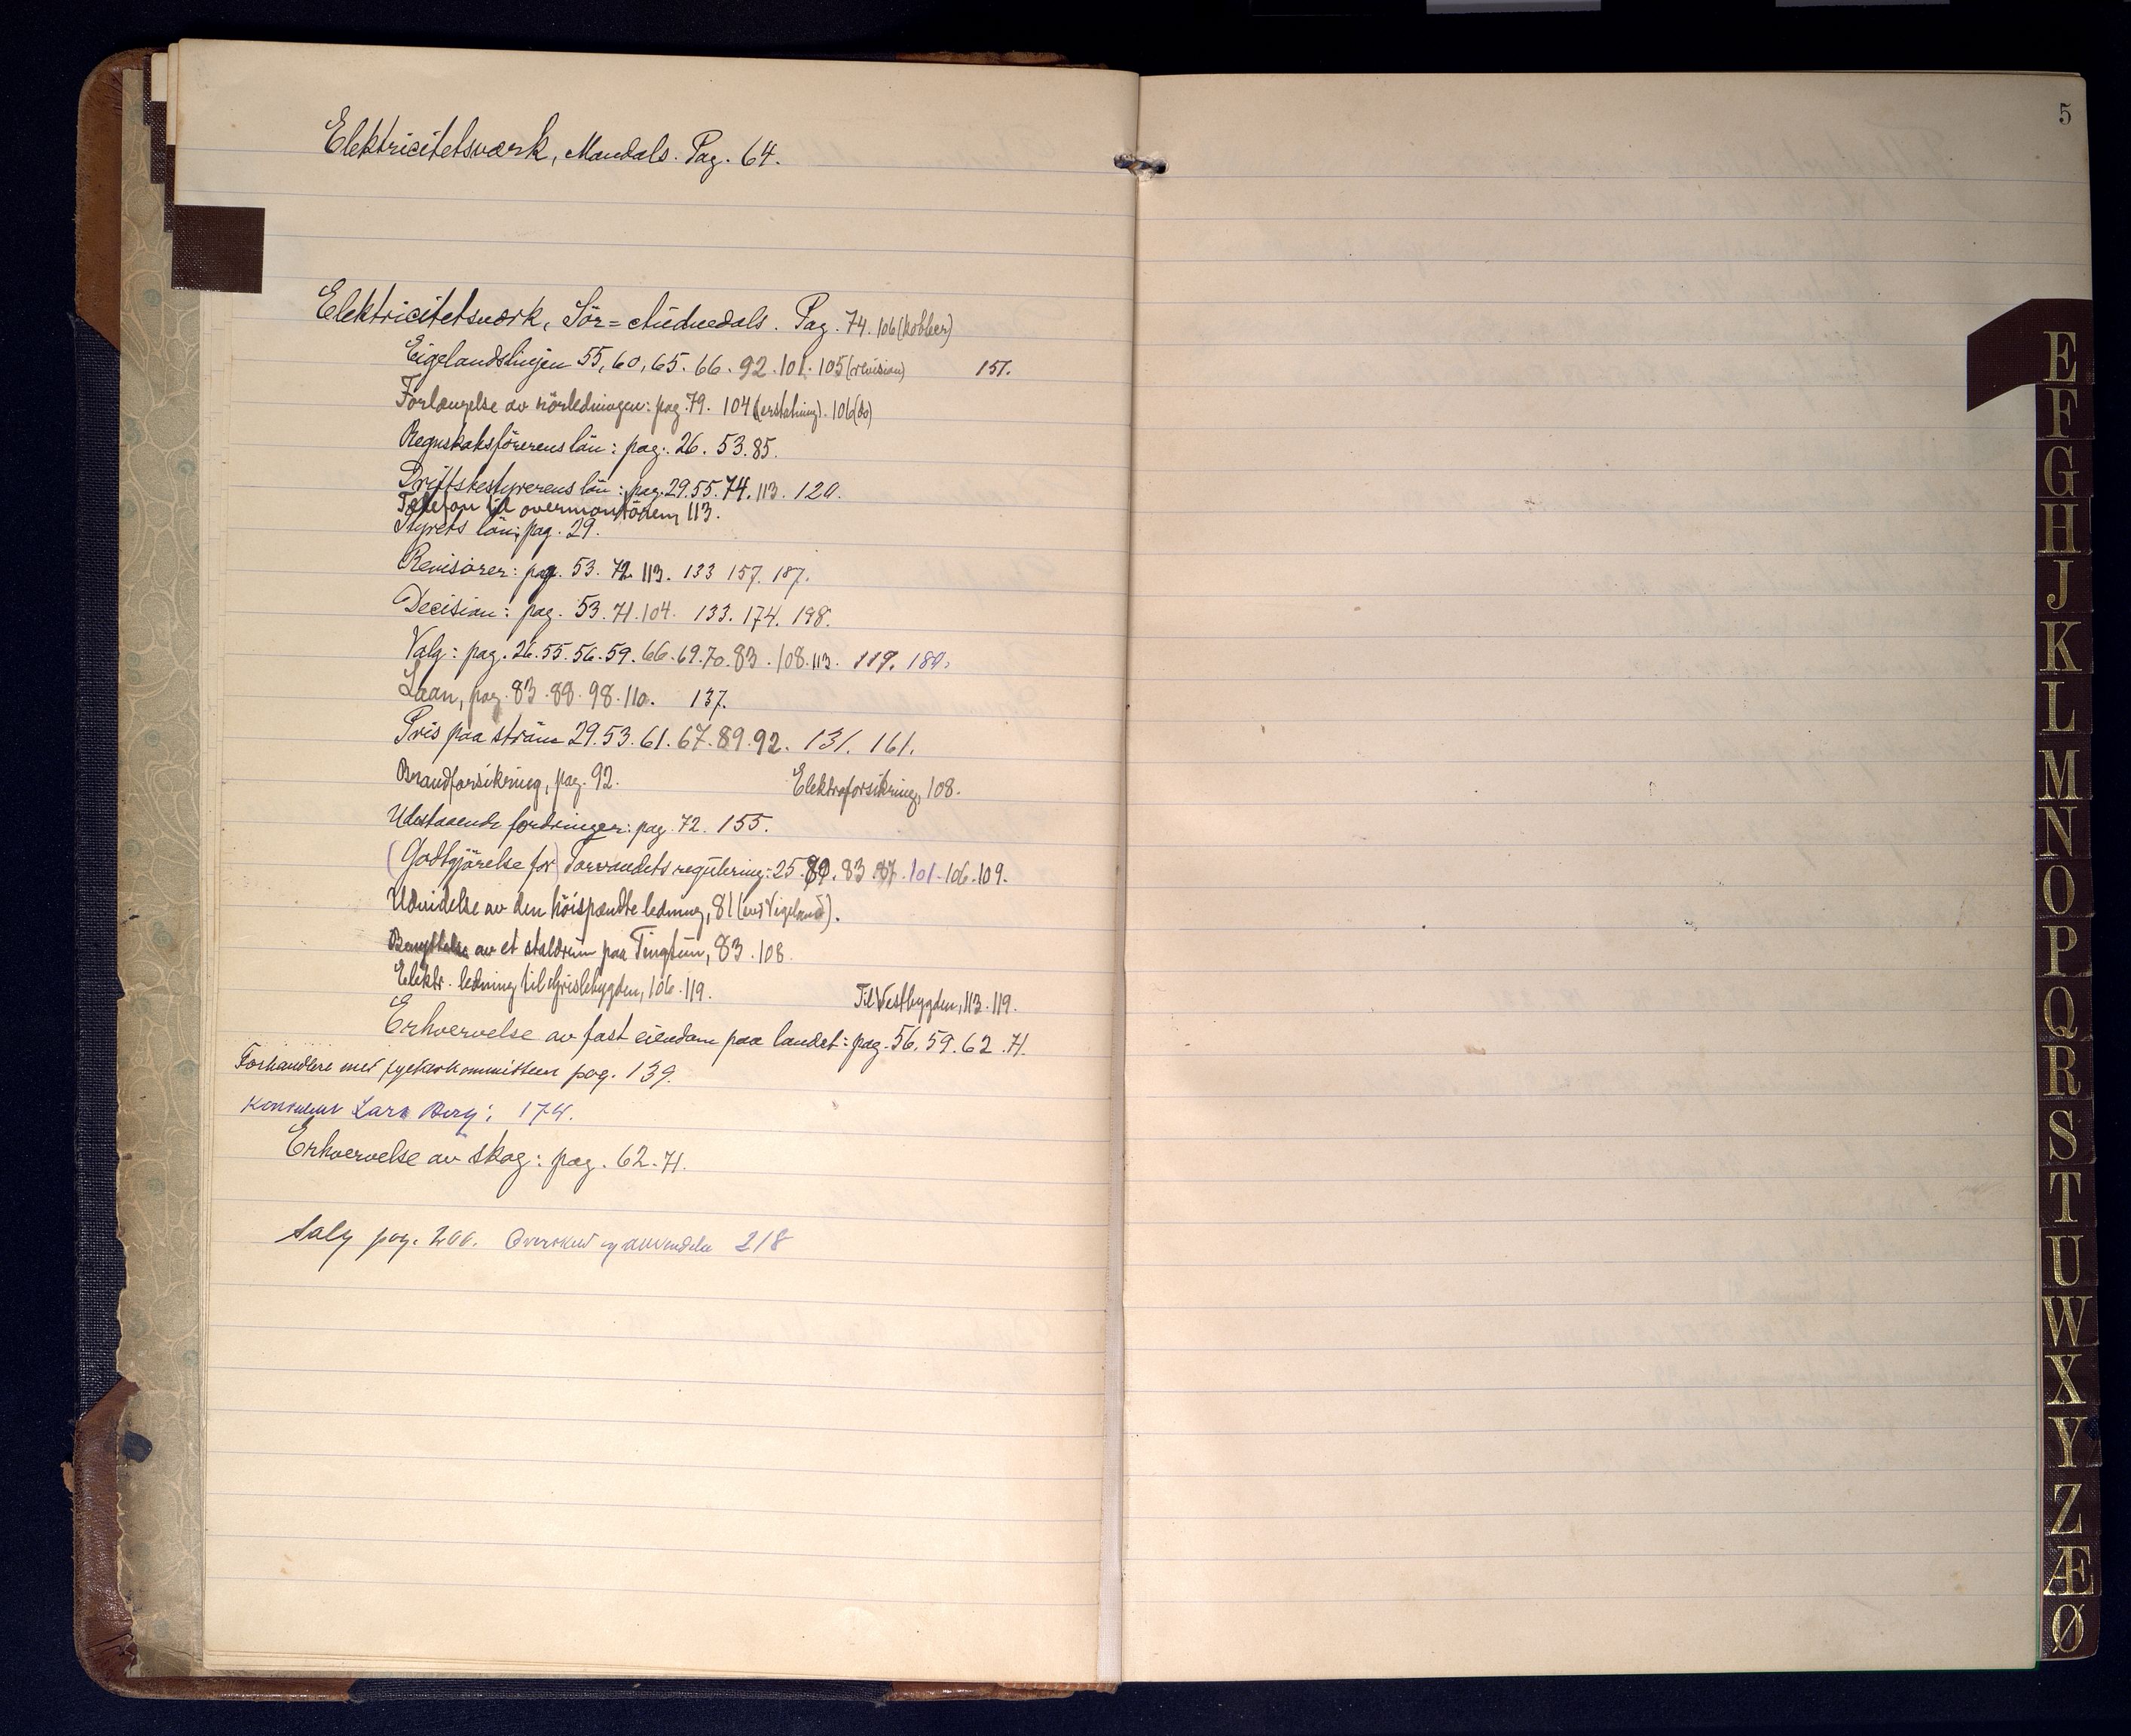 Elektricitetsværk, Mandals. Pag. 64.
Elektricitetsværk, Sör=Audnedals. Pag. 74. 106 (kobber)
Eigelandslinjen 55, 60, 65. 66. 92. 101. 105 (revision) 151.
Forlængelse av rörledningen: pag. 79. 104 (erstatning). 106 (do)
Regnskabsförerens lön: pag. 26. 53. 85.
Driftsbestyrerens lön: pag. 29. 55. 74. 113. 120.
Telefon til overmontören, 113.
Styrets lön: pag. 29.
Revisorer: pag. 53. 72. 113. 133 157. 187.
Decision: pag. 53. 71. 104. 133. 174. 198.
Valg: pag. 26. 55. 56. 59. 66. 69. 70. 83. 108. 113. 119. 180.
Laan, pag. 83. 88. 98. 110. 137.
Pris paa ström 29. 53. 61. 67. 89. 92. 131. 161.
Brandforsikring, pag. 92. Elektroforsikring, 108.
Utestaaende fordringer: pag. 72. 155.
(Godtgjörelse for) Tarvandets regulering: 25. 80. 83. 87. 101. 106. 109.
Utvidelse av den höispændte ledning, 81 (ved Vigeland).
Benyttelse av et staldrum paa Tingtun, 83. 108.
Elektr. ledning til Grislebygden, 106. 119. Til Vestbygden, 113. 119.
Erhvervelse av fast eiendom paa landet: pag. 56. 59. 62. 71.
Forhandlere med fylkeskommisteen pag. 139.
Konsulent Lars Berg: 174.
Erhvervelse av skog: pag. 62. 71.
Salg pag. 200. Overskud og anvendelse 218
5
E
F
G
H
J
K
L
M
N
O
P
Q
R
S
T
U
W
X
Y
Z
Æ
Ø